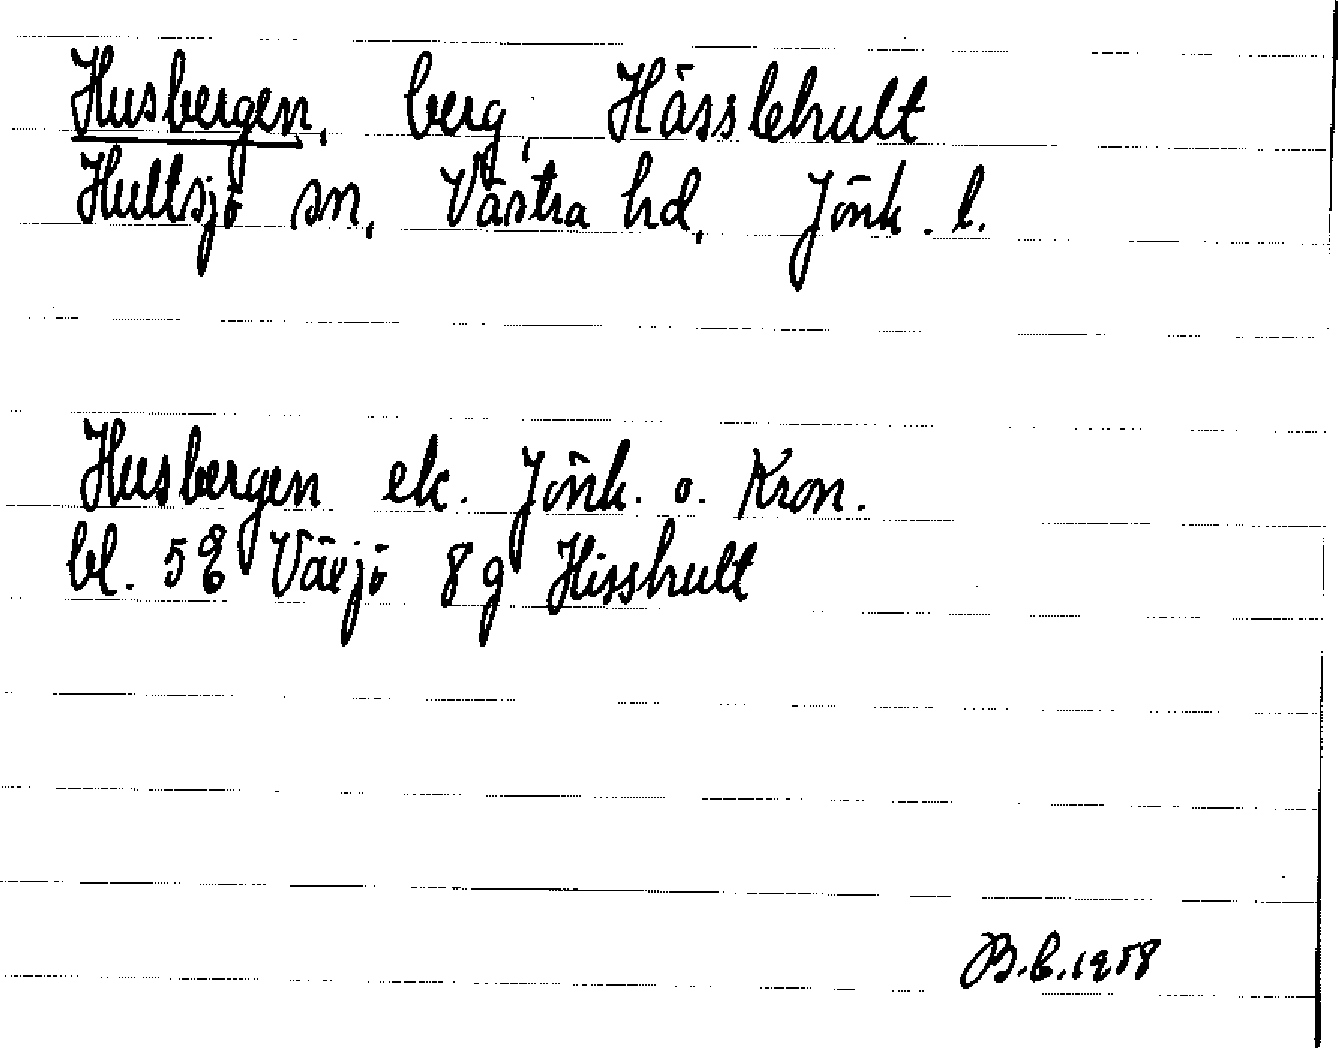 Husbergen, berg, Hässlehult
Hultsjö sn, Västra hd, Jönk. l.
Husbergen ek. Jönk. o. Kron.
bl. 5E Växjö 8g Hisshult
B.b.1958